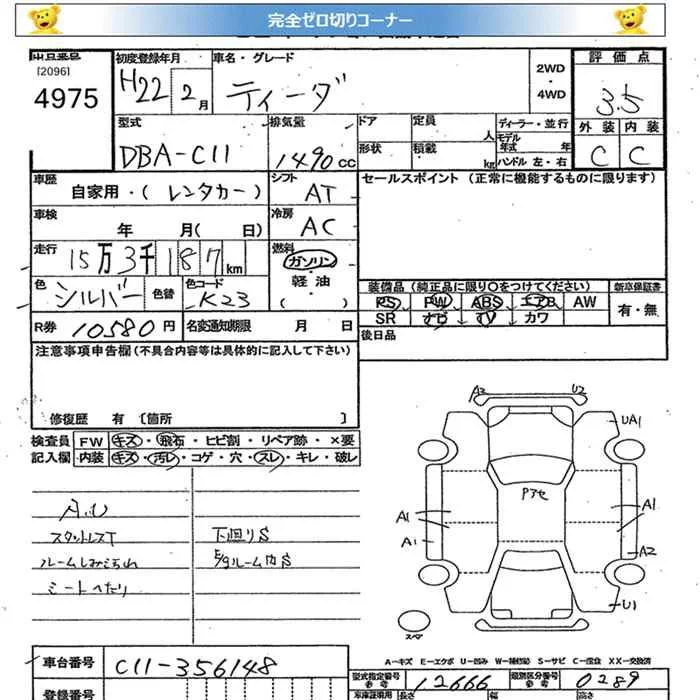 完全ゼロ切りコーナー
出品番号
[2096]
4975
初度登録年月
H22 2月
車名・グレード
ティーダ
2WD
・
4WD
評価点
3.5
外装 内装
C C
型式
DBA-C11
排気量
1490cc
ドア
定員
人
形状
積載
kg
ディーラー・並行
モデル年式 年
ハンドル 左・右
車歴
自家用・(レンタカー)
シフト
AT
セールスポイント (正常に機能するものに限ります)
車検
年 月( 日)
冷房
AC
走行
15万3千187km
燃料
ガソリン
・
軽油
( )
色
シルバー
色替
色コード
K23
装備品(純正品に限り○をつけてください)
新車保証書
PS PW ABS エアB AW
有・無
SR ナビ TV カワ
R券 10580円
名変通知期限 月 日
後日品
注意事項申告欄(不具合内容等は具体的に記入して下さい)
修復歴 有 〔箇所 〕
検査員記入欄
FW キズ・飛石・ヒビ割・リペア跡・×要
内装 キズ・汚レ・コゲ・穴・スレ・キレ・破レ
A.U
スタットレスT
ルームしみよごれ
シートへたり
下回りS
E/gルーム内S
A2
U2
UA1
Pアセ
A1
A1
A1
A2
U1
スペア
A-キズ E-エクボ U-凹み W-補修跡 S-サビ C-腐食 XX-交換済
車台番号
C11-356148
型式指定番号
参考
12666
類別区分番号
参考
0289
登録番号
車庫証明用
参考
長さ
幅
高さ